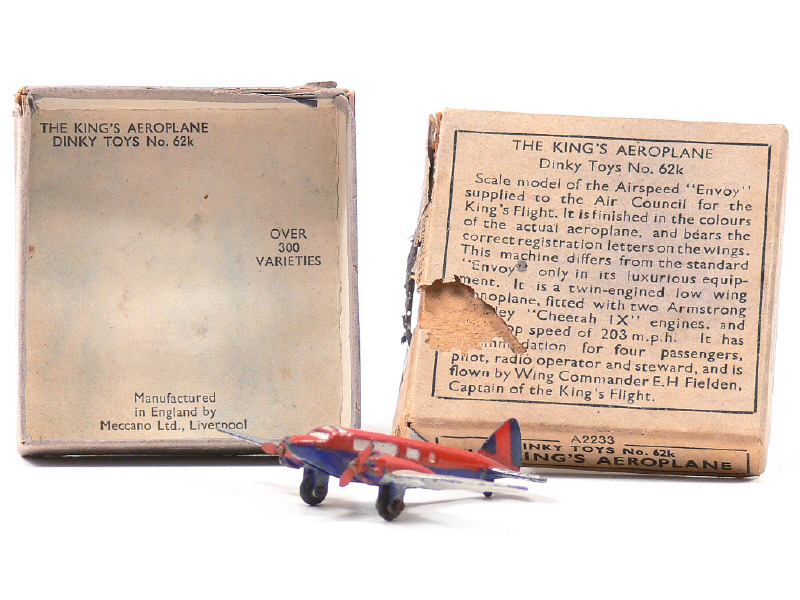 THE KING'S AEROPLANE
DINKY TOYS No. 62k
OVER
300
VARIETIES
Manufactured
in England by
Meccano Ltd., Liverpool
THE KING'S AEROPLANE
Dinky Toys No. 62k
Scale model of the Airspeed "Envoy"
supplied to the Air Council for the
King's Flight. It is finished in the colours
of the actual aeroplane, and bears the
correct registration letters on the wings.
This machine differs from the standard
"Envoy" only in its luxurious equip-
ment. It is a twin-engined low wing
noplane, fitted with two Armstrong
ley "Cheetah IX" engines, and
op speed of 203 m.p.h. It has
mmodation for four passengers,
pilot, radio operator and steward, and is
flown by Wing Commander E.H Fielden,
Captain of the King's Flight.
A2233
DINKY TOYS No. 62k
KING'S AEROPLANE